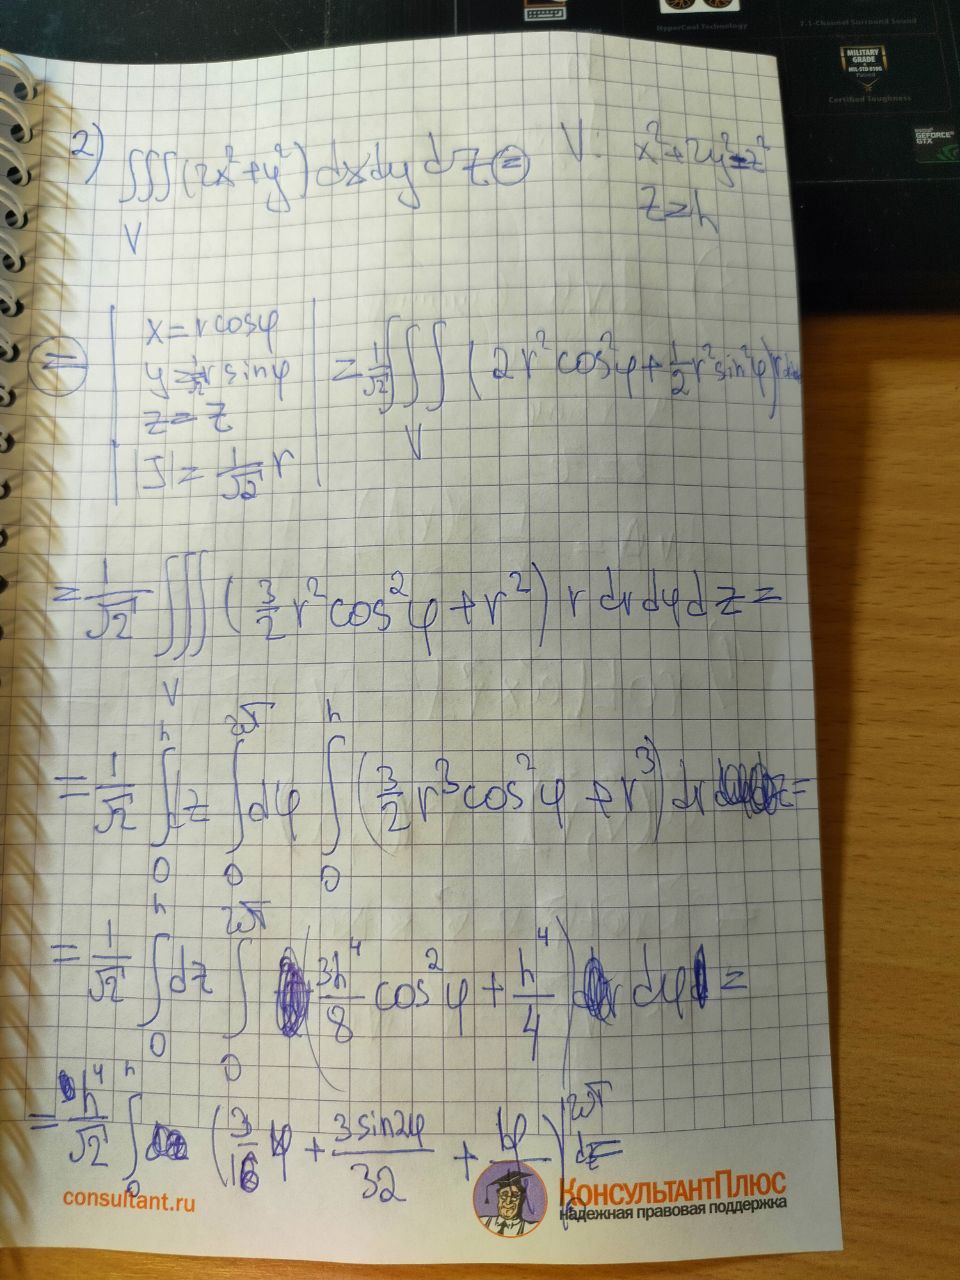 HyperCool Technology
7.1-Channel Surround Sound
MILITARY
GRADE
MIL-STD-810G
Certified Toughness
GEFORCE
GTX
2) ∭(2x²+y²) dxdydz = V: x²+2y²=z²
V z=h
= | x=rcosφ
y=1/√2 rsinφ
z=z
|J|=1/√2 r | = 1/√2 ∭ (2r²cos²φ+1/2r²sin²φ)r
V
= 1/√2 ∭ (3/2 r²cos²φ+r²) r drdφdz =
V
= 1/√2 ∫₀ʰ dz ∫₀²π dφ ∫₀ʰ (3/2 r³cos²φ+r³) dr =
= 1/√2 ∫₀ʰ dz ∫₀²π (3h⁴/8 cos²φ + h⁴/4) dφ =
= h⁴/√2 ∫₀ʰ (3/16 φ + 3sin2φ/32 + φ/ )|²π dz =
consultant.ru
КонсультантПлюс
надежная правовая поддержка